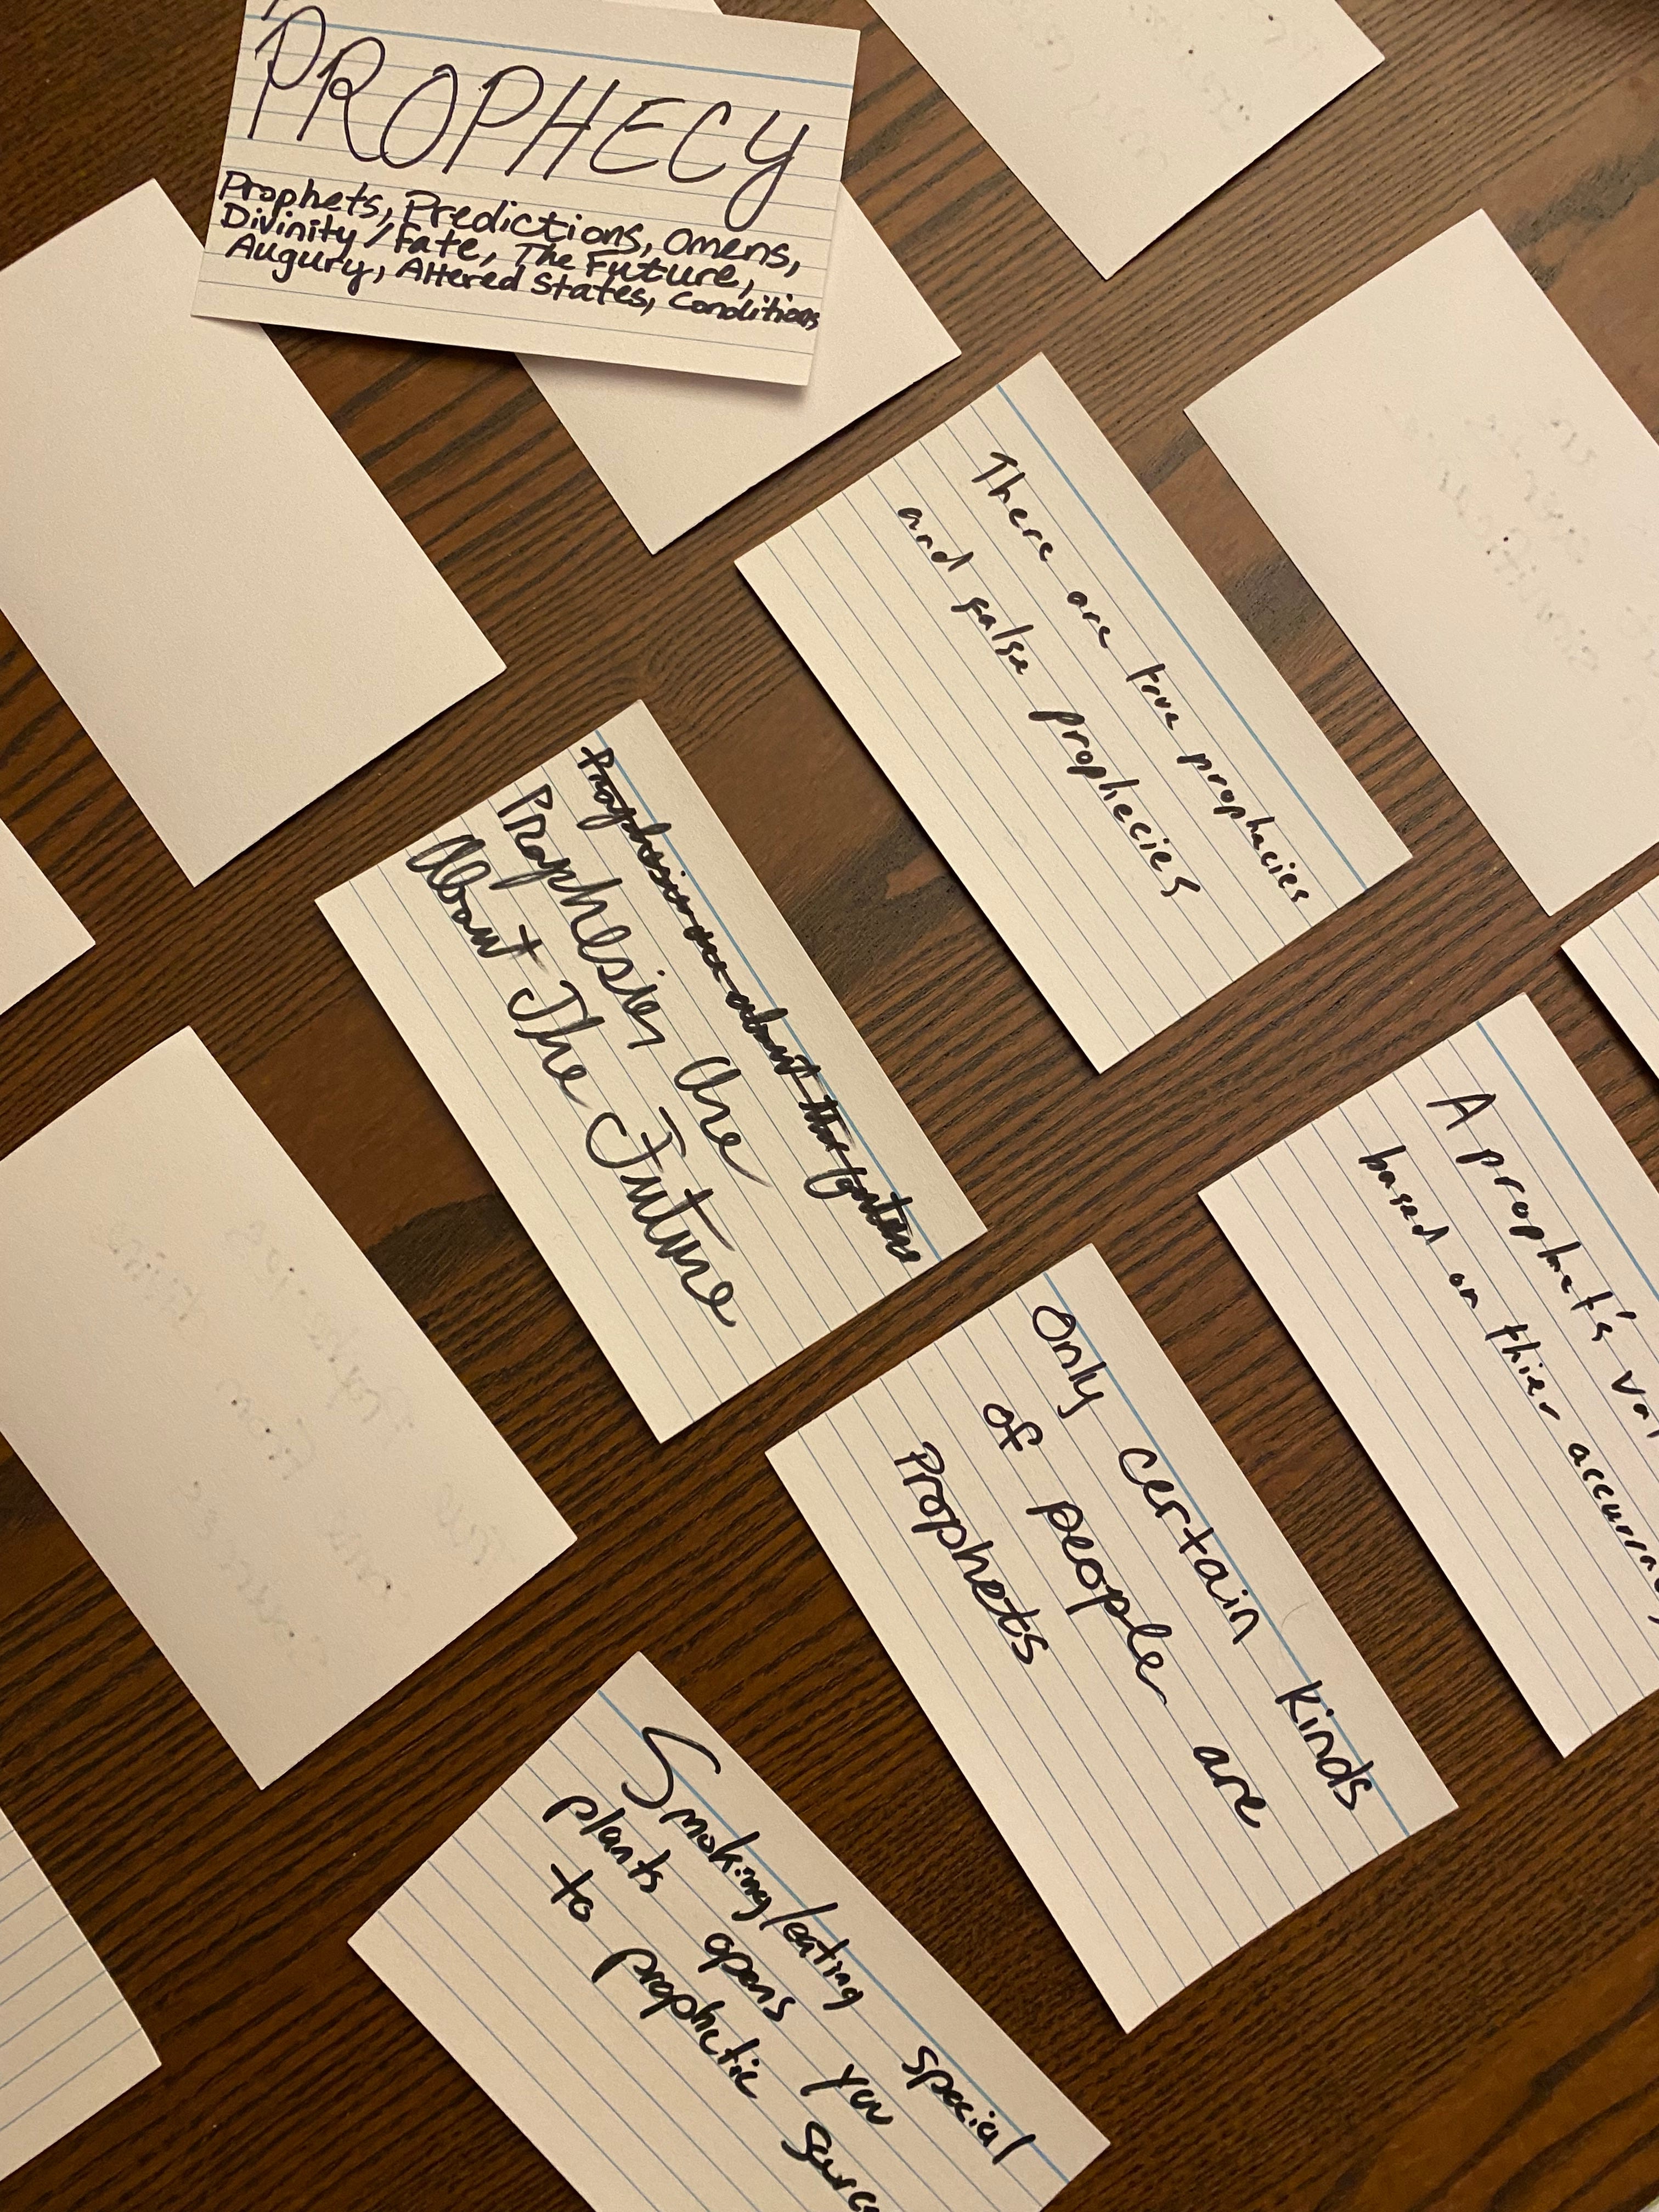 PROPHECY
Prophets, Predictions, Omens,
Divinity/Fate, The Future,
Augury, Altered States, Conditions
There are true prophacies
and false prophecies
Prophesies are about the future
Prophesies are
About The Future
A prophet's
based on thier
Only certain kinds
of people are
Prophets
Smoking/eating special
plants opens you
to prophetic